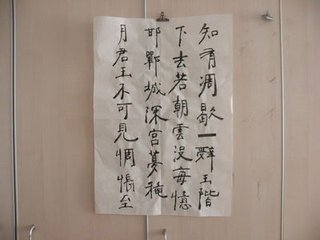 知有凋歇一辭玉階
下去若朝雲沒每憶
邯鄲城深宮夢秋
月君王不可見惆悵至